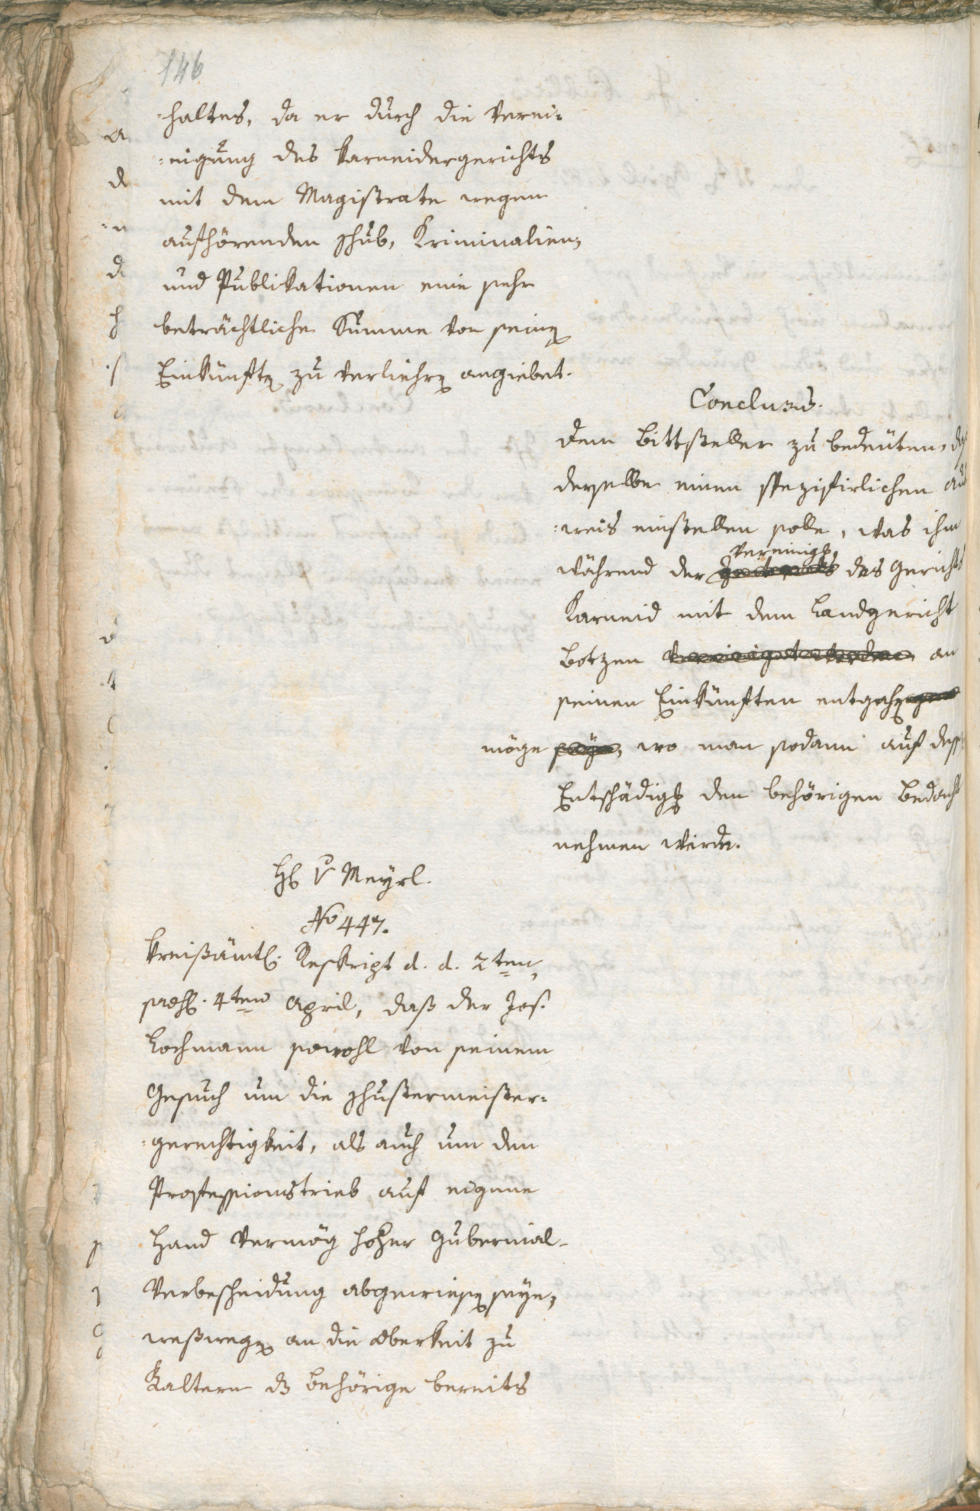 146
haltes, da er durch die Verei-
nigung des Karneidergerichts
mit dem Magistrate wegen
aufhörenden Schub, Kriminalien,
und Publikationen eine sehr
beträchtliche Summe von seinen
Einkünften zu verliehren angiebet.
Conclusus.
Dem Bittsteller zu bedeuten, daß
derselbe einen spezifirlichen Aus
weis einstellen solle, was ihm
während der Vereinigung des Gerichts
Karneid mit dem Landgericht
Botzen an
seinen Einkünften entgehen
möge, wo man sodann auf dessen
Entschädigung den behörigen Bedacht
nehmen werde.
H. v Meyrl.
No 447.
Kreißämtl. Reskript d. d. 2ten,
praes. 4ten April, daß der Jos.
Lochmann sowohl von seinem
Gesuch um die Schustermeister-
gerechtigkeit, als auch um den
Professionstrieb auf eigene
Hand vermög hoher Gubernial-
Verbescheidung abgewiesen seye,
weßwegen an die Oberkeit zu
Kaltern das behörige bereits